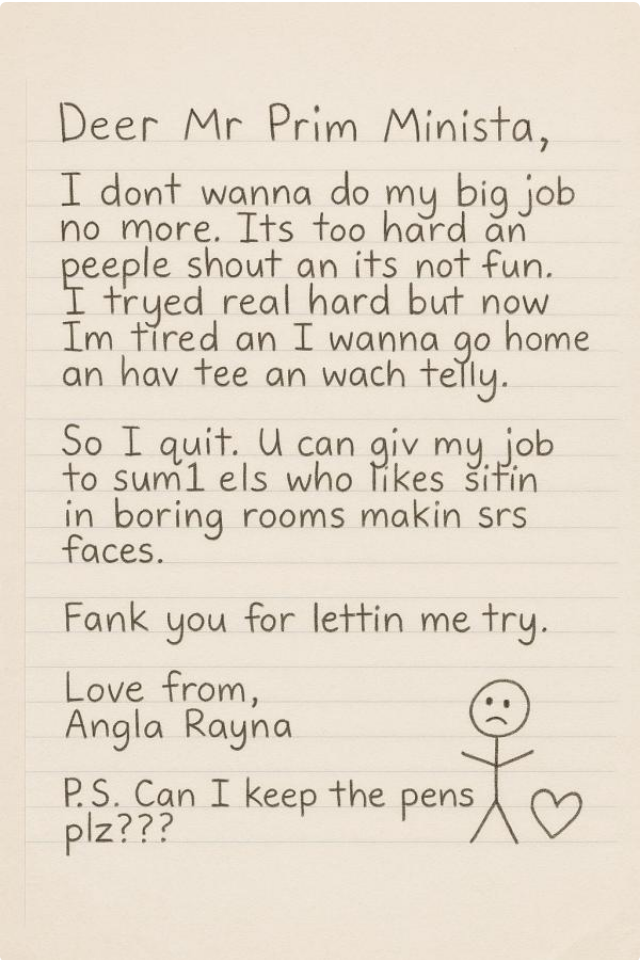 Deer Mr Prim Minista,
I dont wanna do my big job
no more. Its too hard an
peeple shout an its not fun.
I tryed real hard but now
Im tired an I wanna go home
an hav tee an wach telly.
So I quit. U can giv my job
to sum1 els who likes sitin
in boring rooms makin srs
faces.
Fank you for lettin me try.
Love from,
Angla Rayna
P.S. Can I keep the pens
plz???